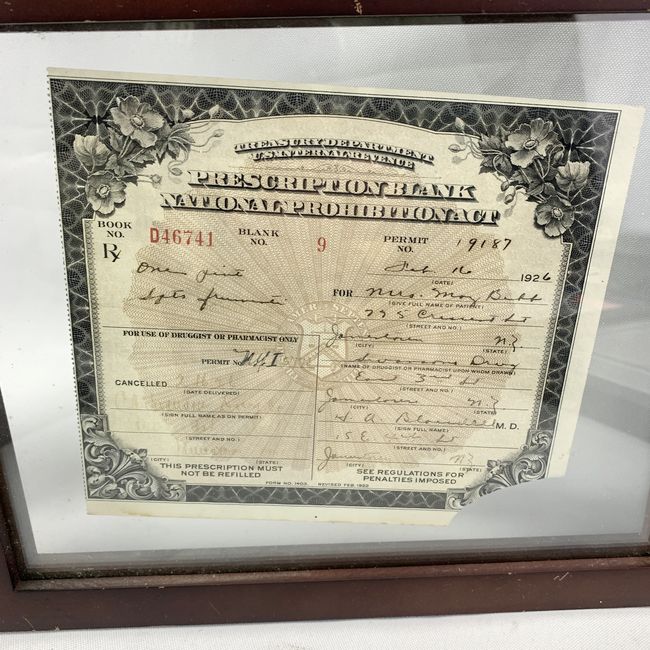 TREASURY DEPARTMENT
U.S. INTERNAL REVENUE
PRESCRIPTION BLANK
NATIONAL PROHIBITION ACT
BOOK NO. D46741 BLANK NO. 9 PERMIT NO. 19187
Rx
One pint
Feb 16 1926
(DATE)
FOR Mrs. May
(GIVE FULL NAME OF PATIENT)
775 Crescent St
(STREET AND NO.)
Jamestown N.Y
(CITY) (STATE)
Swansons Drug
(NAME OF DRUGGIST OR PHARMACIST UPON WHOM DRAWN)
East 3rd St
(STREET AND NO.)
Jamestown N.Y
(CITY) (STATE)
A M.D.
(SIGN FULL NAME)
15 E 4th St
(STREET AND NO.)
N.Y
(CITY) (STATE)
SEE REGULATIONS FOR
PENALTIES IMPOSED
FOR USE OF DRUGGIST OR PHARMACIST ONLY
PERMIT NO. N.Y.I
CANCELLED
(DATE DELIVERED)
(SIGN FULL NAME AS ON PERMIT)
(STREET AND NO.)
(CITY) (STATE)
THIS PRESCRIPTION MUST
NOT BE REFILLED
FORM NO. 1403 REVISED FEB. 1922